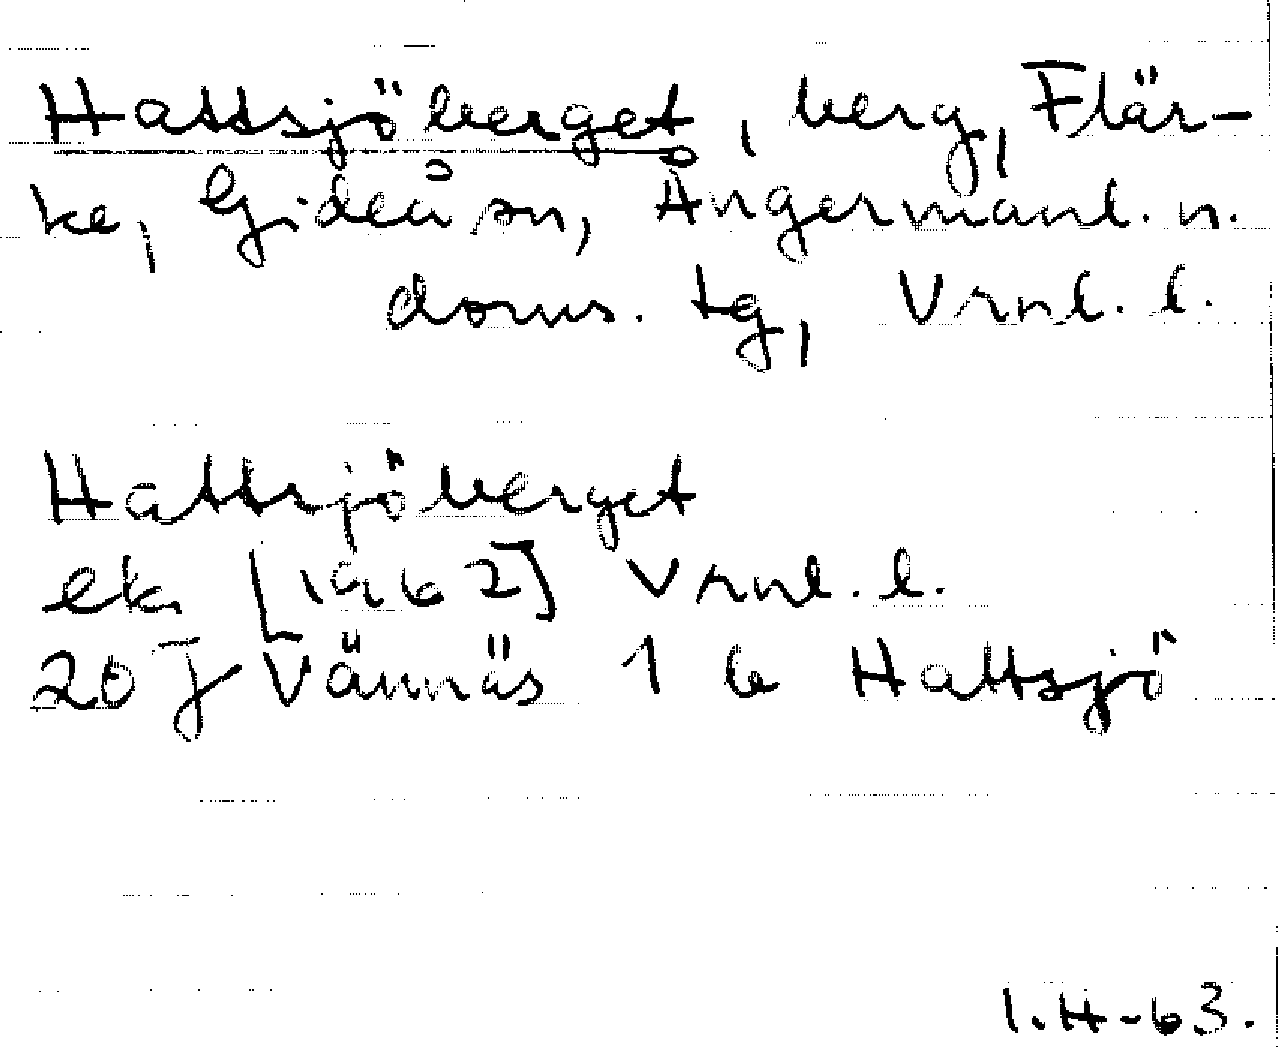 Hattsjöberget, berg, Flär-
ke, Gideå sn, Ångermanl. n.
doms. tg, Vrnl. l.
Hattsjöberget
ek [1962] Vrnl. l.
20 J Vännäs 1 b Hattsjö
I.H-63.